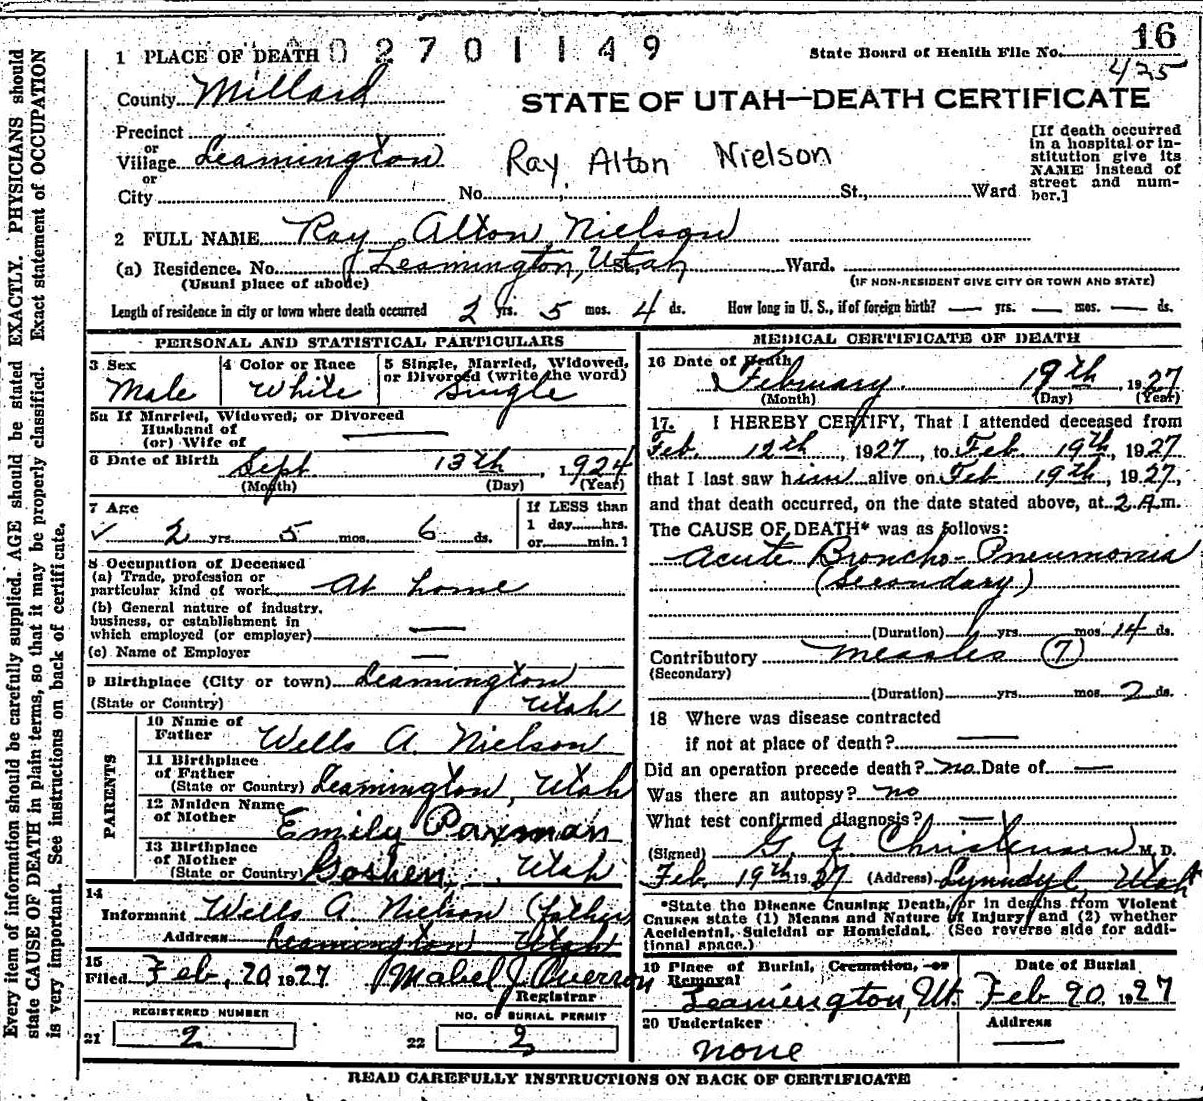 1 PLACE OF DEATH 02701149
State Board of Health File No. 16
425
County Millard
STATE OF UTAH—DEATH CERTIFICATE
Precinct
or
Village Leamington
or
City
Ray Alton Nielson
No. St., Ward
[If death occurred
in a hospital or in-
stitution give its
NAME instead of
street and num-
ber.]
2 FULL NAME Ray Alton Nielson
(a) Residence. No. Leamington, Utah Ward.
(Usual place of abode)
(IF NON-RESIDENT GIVE CITY OR TOWN AND STATE)
Length of residence in city or town where death occurred 2 yrs. 5 mos. 4 ds. How long in U. S., if of foreign birth? — yrs. — mos. — ds.
PERSONAL AND STATISTICAL PARTICULARS
3 Sex
Male
4 Color or Race
White
5 Single, Married, Widowed,
or Divorced (write the word)
Single
5a If Married, Widowed, or Divorced
Husband of
(or) Wife of —
6 Date of Birth Sept 13th, 1924
(Month) (Day) (Year)
7 Age
✓ 2 yrs. 5 mos. 6 ds.
If LESS than
1 day......hrs.
or......min.?
8 Occupation of Deceased
(a) Trade, profession or
particular kind of work At home
(b) General nature of industry,
business, or establishment in
which employed (or employer) —
(c) Name of Employer —
9 Birthplace (City or town) Leamington
(State or Country) Utah
PARENTS
10 Name of
Father Wells A. Nielson
11 Birthplace
of Father
(State or Country) Leamington, Utah
12 Maiden Name
of Mother Emily Paxman
13 Birthplace
of Mother
(State or Country) Goshen, Utah
14
Informant Wells A. Nielson (father
Address Leamington Utah
15
Filed Feb, 20 1927 Mabel J. Overson
Registrar
REGISTERED NUMBER
21 2
NO. OF BURIAL PERMIT
22 2
MEDICAL CERTIFICATE OF DEATH
16 Date of Death
February 19th 1927
(Month) (Day) (Year)
17. I HEREBY CERTIFY, That I attended deceased from
Feb. 12th, 1927, to Feb 19th, 1927
that I last saw him alive on Feb 19th, 1927,
and that death occurred, on the date stated above, at 2 A.m.
The CAUSE OF DEATH* was as follows:
Acute Broncho-Pneumonia
(Secondary)
(Duration) yrs. mos. 14 ds.
Contributory Measles (7)
(Secondary)
(Duration) yrs. mos. 2 ds.
18 Where was disease contracted
if not at place of death? —
Did an operation precede death? no Date of —
Was there an autopsy? no
What test confirmed diagnosis? —
(Signed) Christensen M. D.
Feb. 19th 1927 (Address) Lynndyl, Utah
*State the Disease Causing Death, or in deaths from Violent
Causes state (1) Means and Nature of Injury; and (2) whether
Accidental, Suicidal or Homicidal. (See reverse side for addi-
tional space.)
19 Place of Burial, Cremation, or
Removal
Leamington, Ut.
Date of Burial
Feb 20 1927
20 Undertaker
none
Address
—
READ CAREFULLY INSTRUCTIONS ON BACK OF CERTIFICATE
Every item of information should be carefully supplied. AGE should be stated EXACTLY. PHYSICIANS should
state CAUSE OF DEATH in plain terms, so that it may be properly classified. Exact statement of OCCUPATION
is very important. See instructions on back of certificate.